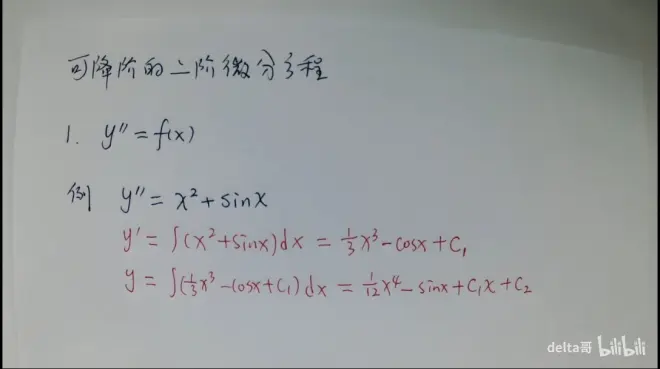 可降阶的二阶微分方程
1. y″ = f(x)
例 y″ = x² + sinx
y′ = ∫(x² + sinx)dx = ⅓x³ − cosx + C₁
y = ∫(⅓x³ − cosx + C₁)dx = 1/12 x⁴ − sinx + C₁x + C₂
delta哥 bilibili